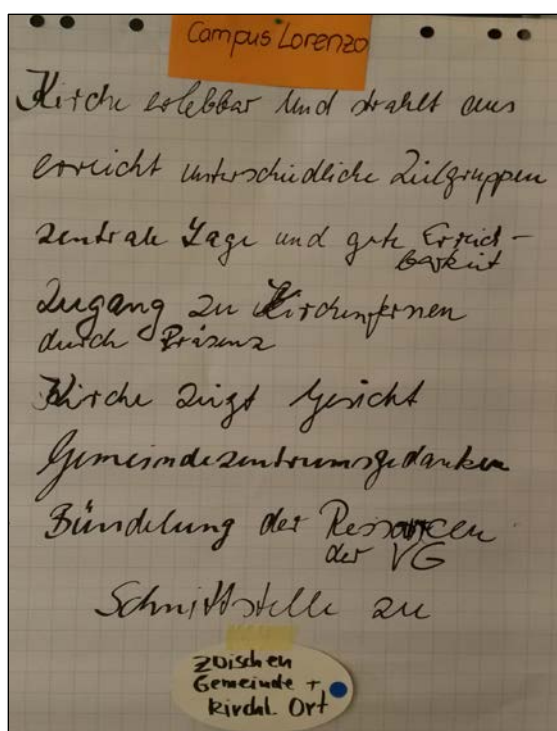 Campus Lorenzo
Kirche erlebbar und strahlt aus
erreicht unterschiedliche Zielgruppen
zentrale Lage und gute Erreich-
barkeit
Zugang zu Kirchenfernen
durch Präsenz
Kirche zeigt Gesicht
Gemeindezentrumsgedanken
Bündelung der Ressourcen
der VG
Schnittstelle zu
zwischen
Gemeinde +
kirchl. Ort